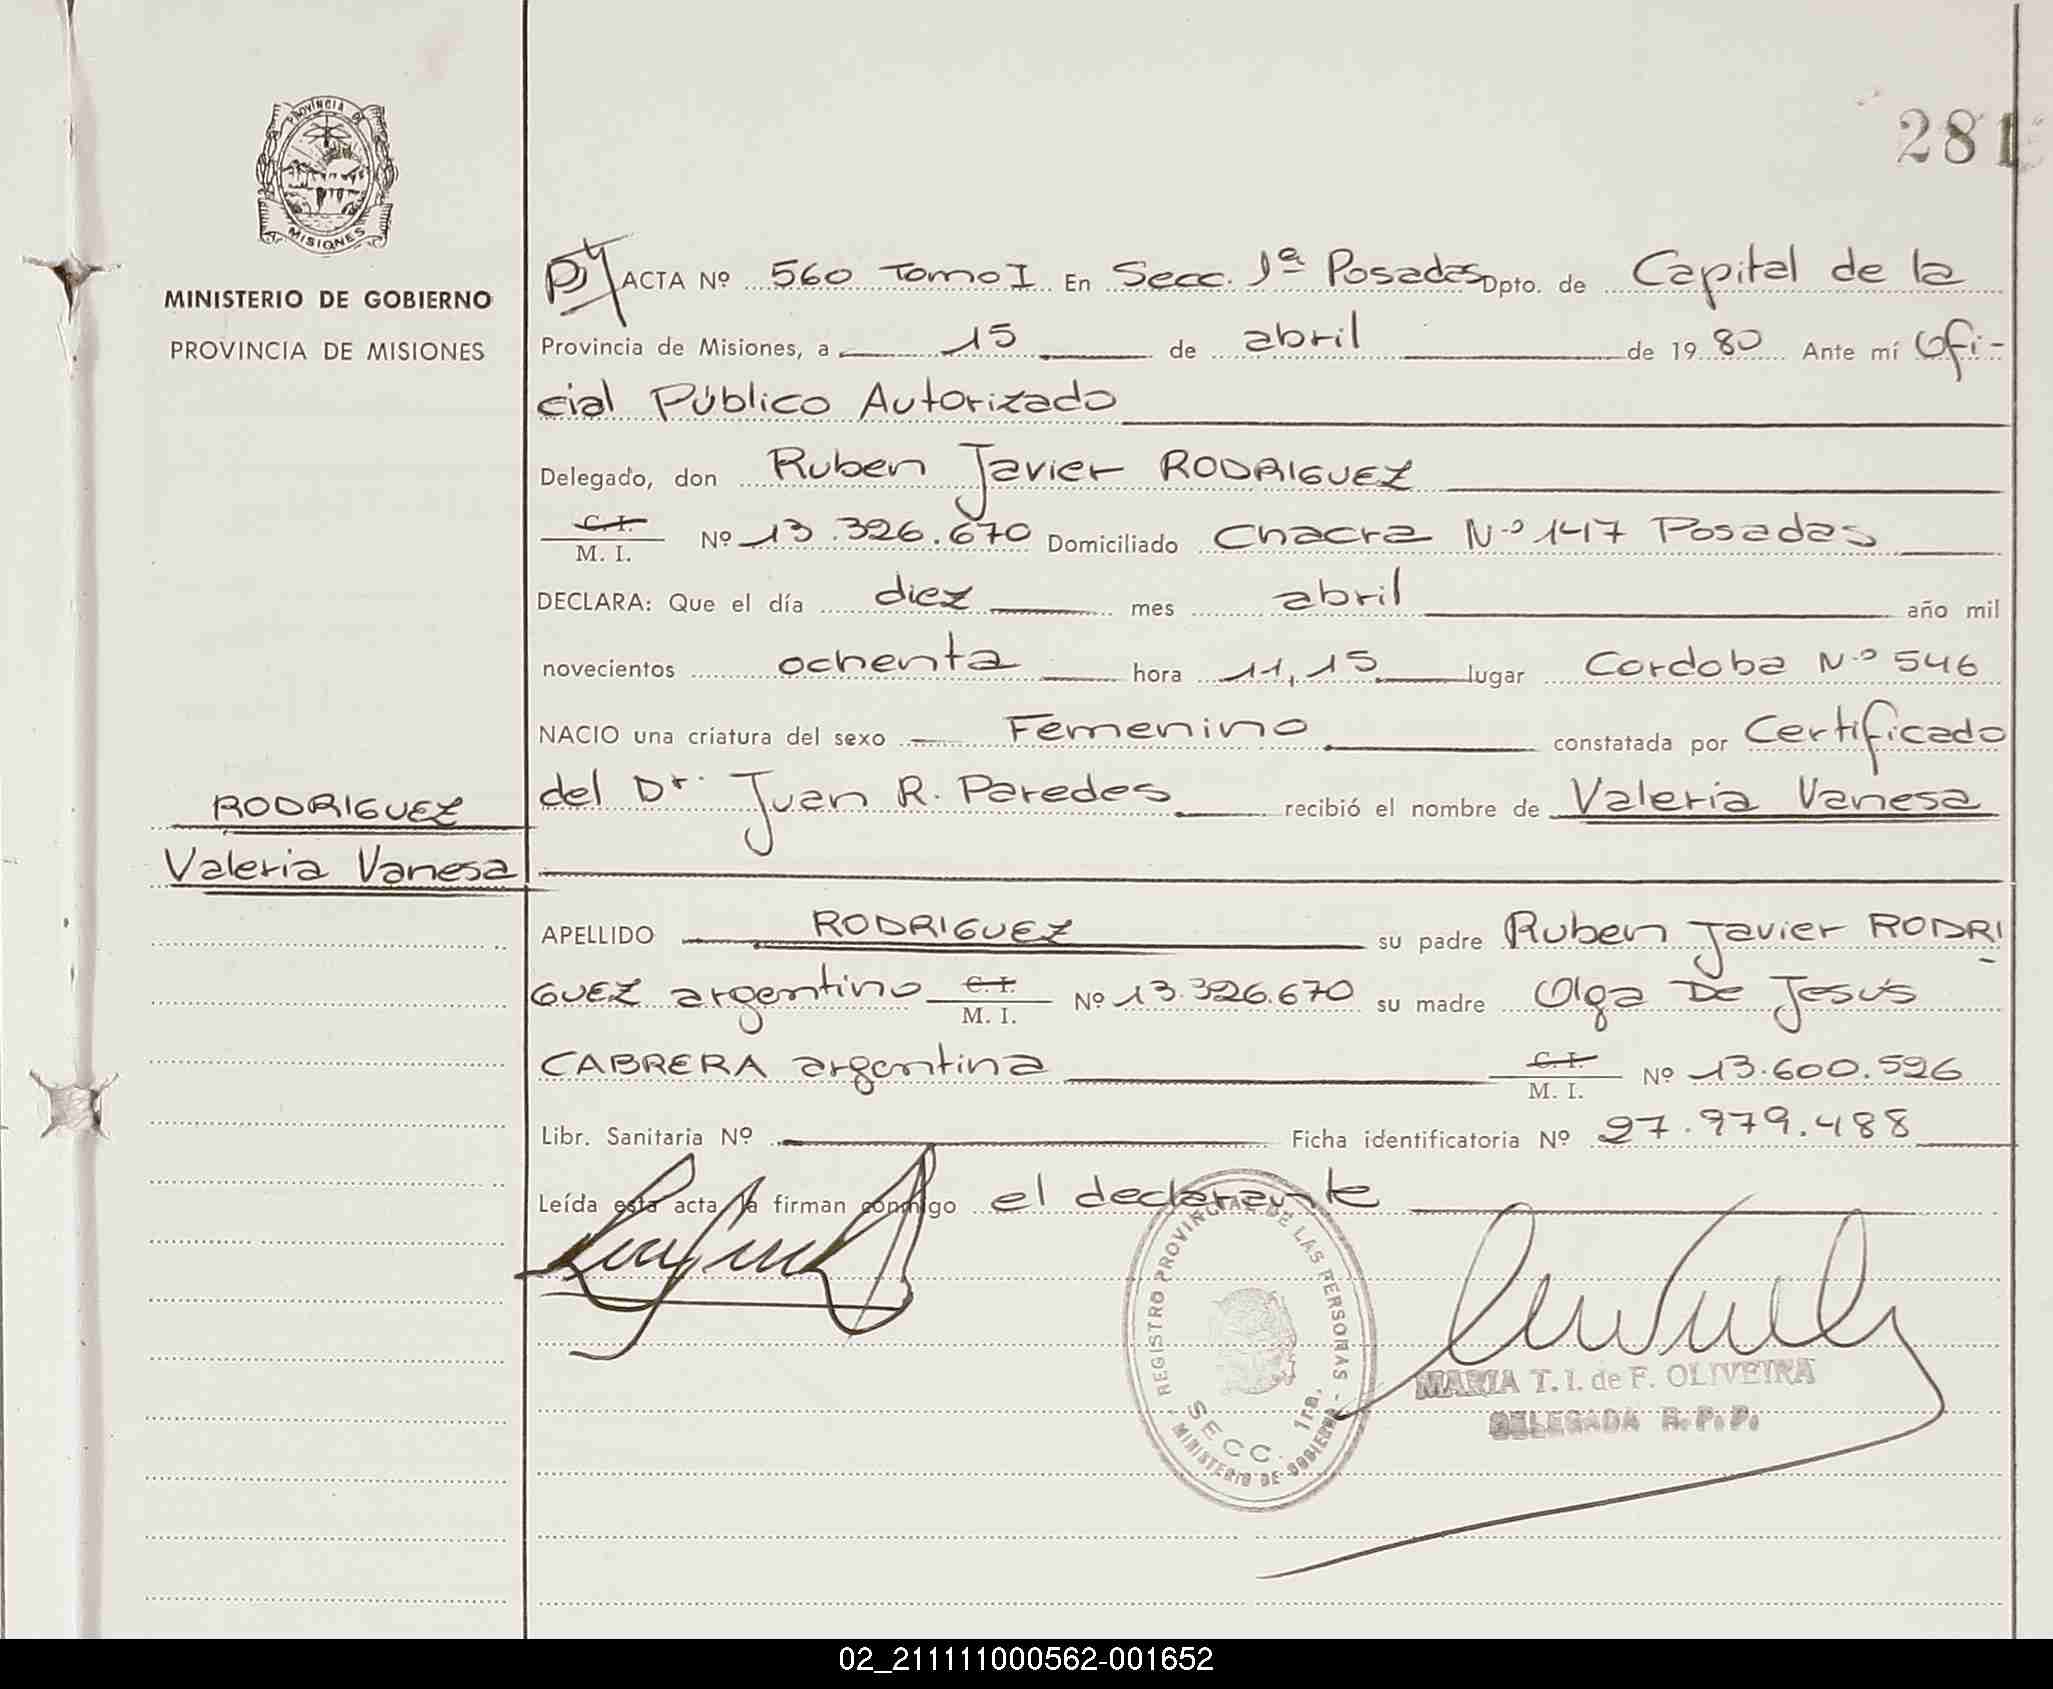 PROVINCIA DE
MISIONES
MINISTERIO DE GOBIERNO
PROVINCIA DE MISIONES
281
ACTA Nº 560 Tomo I En Secc. 1ª Posadas Dpto. de Capital de la
Provincia de Misiones, a 15 de abril de 1980 Ante mí Ofi-
cial Público Autorizado
Delegado, don Ruben Javier RODRIGUEZ
C. I.
M. I. Nº 13.326.670 Domiciliado Chacra Nº 147 Posadas
DECLARA: Que el día diez mes abril año mil
novecientos ochenta hora 11,15 lugar Cordoba Nº 546
NACIO una criatura del sexo Femenino constatada por Certificado
del Dr. Juan R. Paredes recibió el nombre de Valeria Vanesa
RODRIGUEZ
Valeria Vanesa
APELLIDO RODRIGUEZ su padre Ruben Javier RODRI
GUEZ argentino C. I. M. I. Nº 13.326.670 su madre Olga De Jesús
CABRERA argentina C. I. M. I. Nº 13.600.526
Libr. Sanitaria Nº Ficha identificatoria Nº 27.979.488
Leída esta acta la firman conmigo el declarante
REGISTRO PROVINCIAL DE LAS PERSONAS - MINISTERIO DE GOBIERNO
SECC. 1ra.
MARIA T. I. de F. OLIVEIRA
DELEGADA R. P. P.
02_211111000562-001652